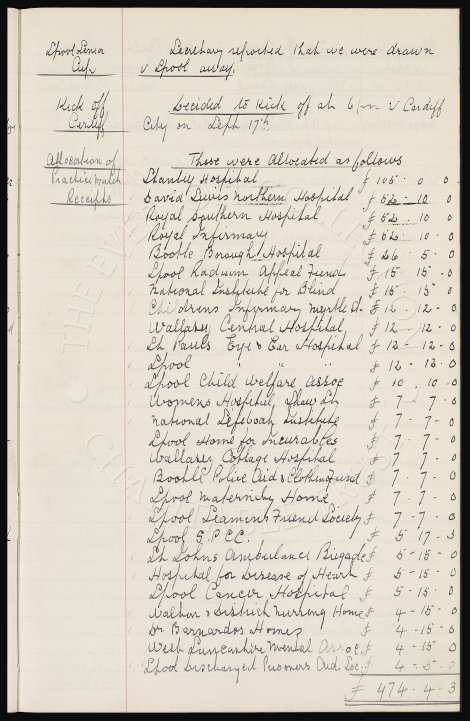 Lpool Senior Cup
Secretary reported that we were drawn
v Lpool away.
Kick Off Cardiff
Decided to Kick off at 6 pm v Cardiff
City on Sept 17th
Allocation of Practice Match Receipts
These were Allocated as follows
Stanley Hospital £ 105 . 0 0
David Lewis Northern Hospital £ 52 . 10 0
Royal Southern Hospital £ 52 . 10 0
Royal Infirmary £ 52 . 10 0
Bootle Borough Hospital £ 26 . 5 . 0
Lpool Radium Appeal Fund £ 15 - 15 - 0
National Institute for Blind £ 15 . 15 . 0
Childrens Infirmary Myrtle St. £ 12 . 12 - 0
Wallasey Central Hospital £ 12 - 12 - 0
St Pauls Eye & Ear Hospital £ 12 - 12 - 0
Lpool " " " " £ 12 - 12 - 0
Lpool Child Welfare Assoc £ 10 . 10 . 0
Womens Hospital, Shaw St £ 7 - 7 . 0
National Lifeboat Institute £ 7 - 7 - 0
Lpool Home for Incurables £ 7 . 7 - 0
Wallasey Cottage Hospital £ 7 . 7 - 0
Bootle Police Aid & Clothing Fund £ 7 . 7 . 0
Lpool Maternity Home £ 7 . 7 . 0
Lpool Seamens Friend Society £ 7 - 7 . 0
Lpool S.P.C.C. £ 5 - 17 - 3
St Johns Ambulance Brigade £ 5 - 15 - 0
Hospital for Disease of Heart £ 5 - 15 - 0
Lpool Cancer Hospital £ 5 - 15 . 0
Walton & District Nursing Home £ 4 - 15 - 0
Dr Barnardos Homes £ 4 - 15 - 0
West Lancashire Mental Assoc £ 4 - 15 0
Lpool Discharged Prisoners Aid Soc. £ 4 - 5 - 0
£ 474 - 4 - 3